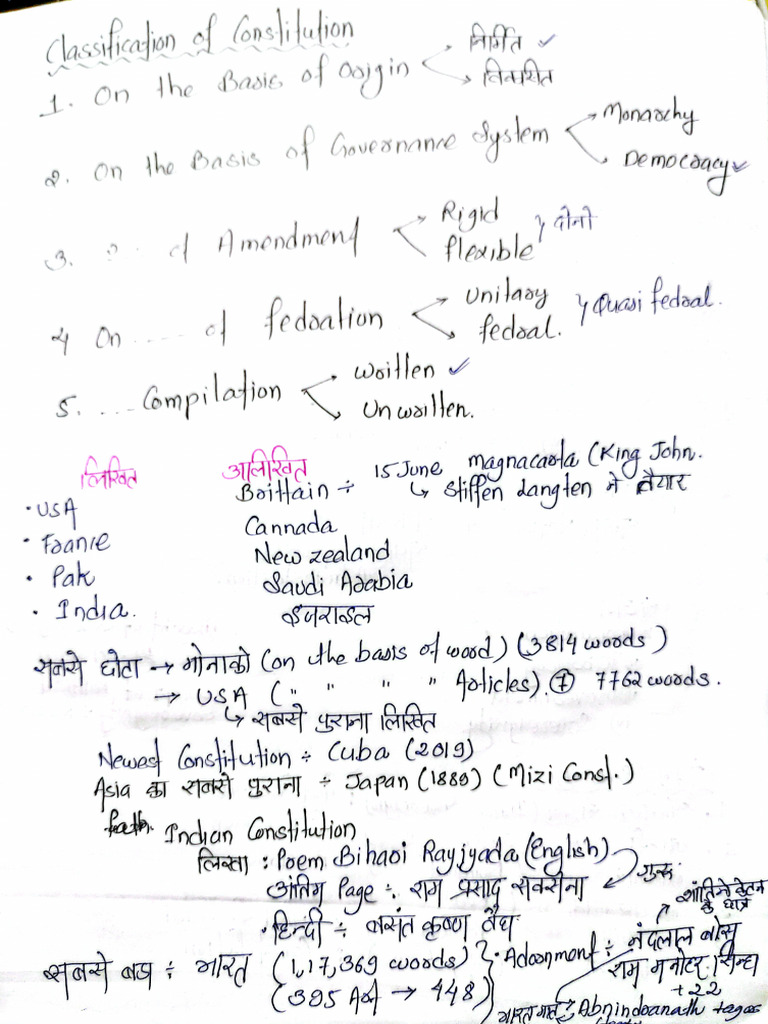 Classification of Constitution
1. On the Basis of Origin निर्मित ✓
विकसित
2. On the Basis of Governance System Monarchy
Democracy ✓
3. of Amendment Rigid
flexible } दोनो
4 On ..... of fedration Unitary
fedral. } Quasi fedral.
5. .... Compilation written ✓
Unwritten.
लिखित अलिखित
Brittain ÷ 15 June magnacarta (King John.
↳ Stiffen Langten ने तैयार
• USA
Cannada
• France
New zealand
• Pak
Saudi Arabia
• India.
इजराइल
सबसे छोटा → मोनाको (on the basis of word) (3814 words)
→ USA ( " " " " Articles). ⑦ 7762 words.
↳ सबसे पुराना लिखित
Newest Constitution ÷ Cuba (2019)
Asia का सबसे पुराना ÷ Japan (1889) (Mizi Const.)
Indian Constitution
लिखा : Poem Bihari Rayjyada (English)
अंतिम Page ÷ राम प्रसाद सक्सेना
• हिन्दी ÷ बसंत कृष्ण वैद्य
शांतिनिकेतन के छात्र
सबसे बडा ÷ भारत (1,17,369 words)
(395 Art → 448)
• Adornment ÷ नंदलाल बोस
राम मनोहर सिन्हा
+ 22
Abnindranath tagor